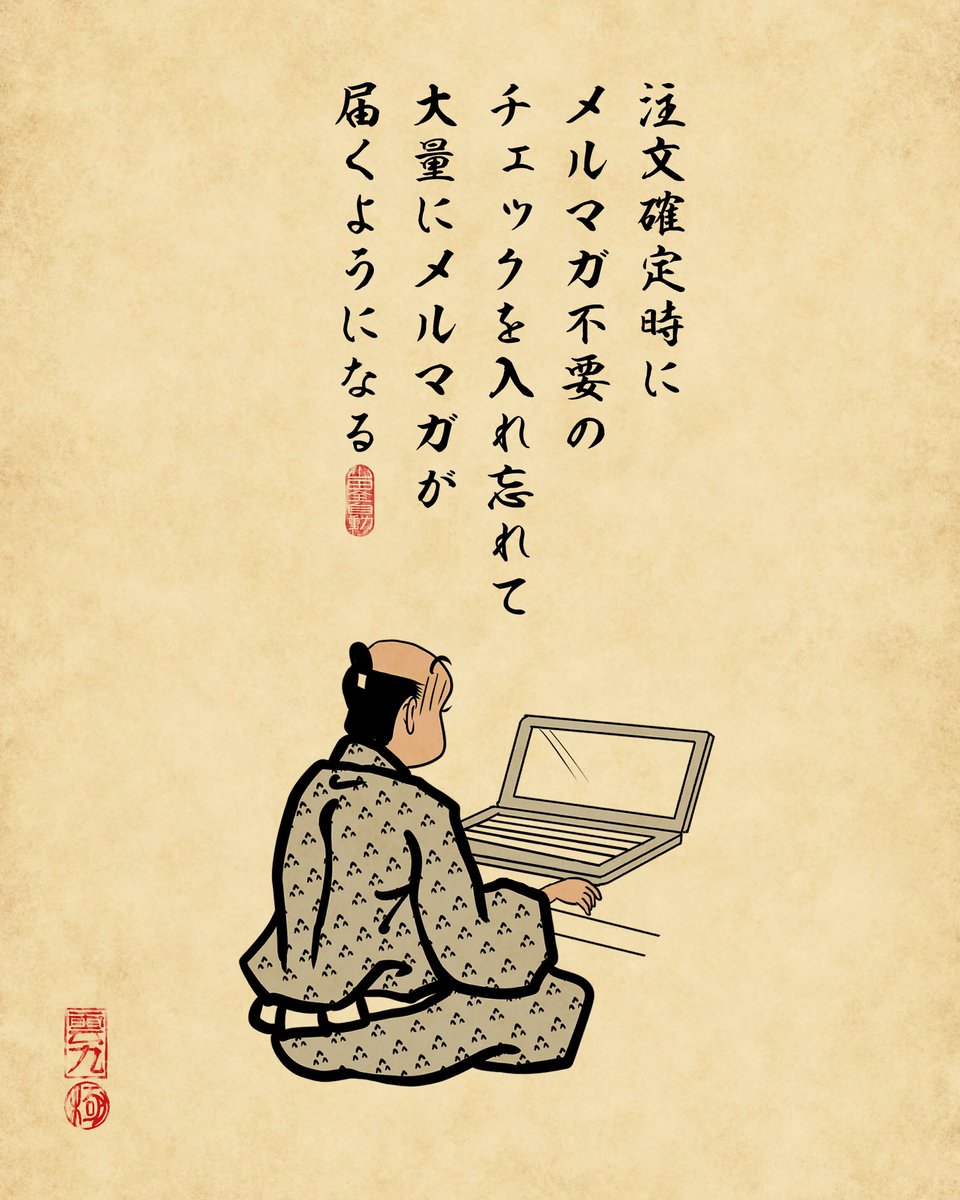 注文確定時に
メルマガ不要の
チェックを入れ忘れて
大量にメルマガが
届くようになる
雲九
極